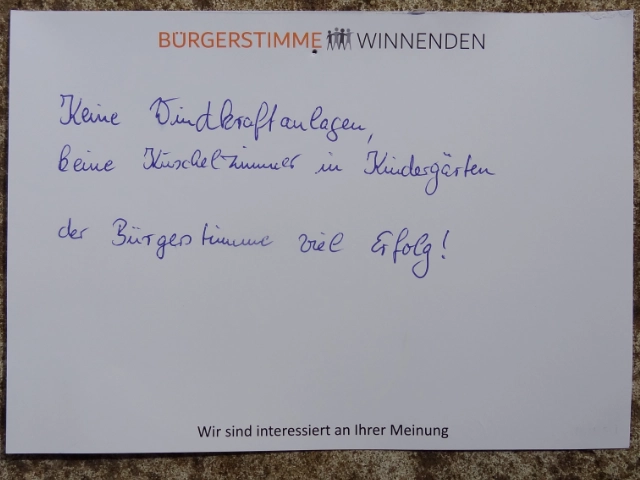 BÜRGERSTIMME WINNENDEN
Keine Windkraftanlagen,
keine Kuschelzimmer in Kindergärten
der Bürgerstimme viel Erfolg!
Wir sind interessiert an Ihrer Meinung